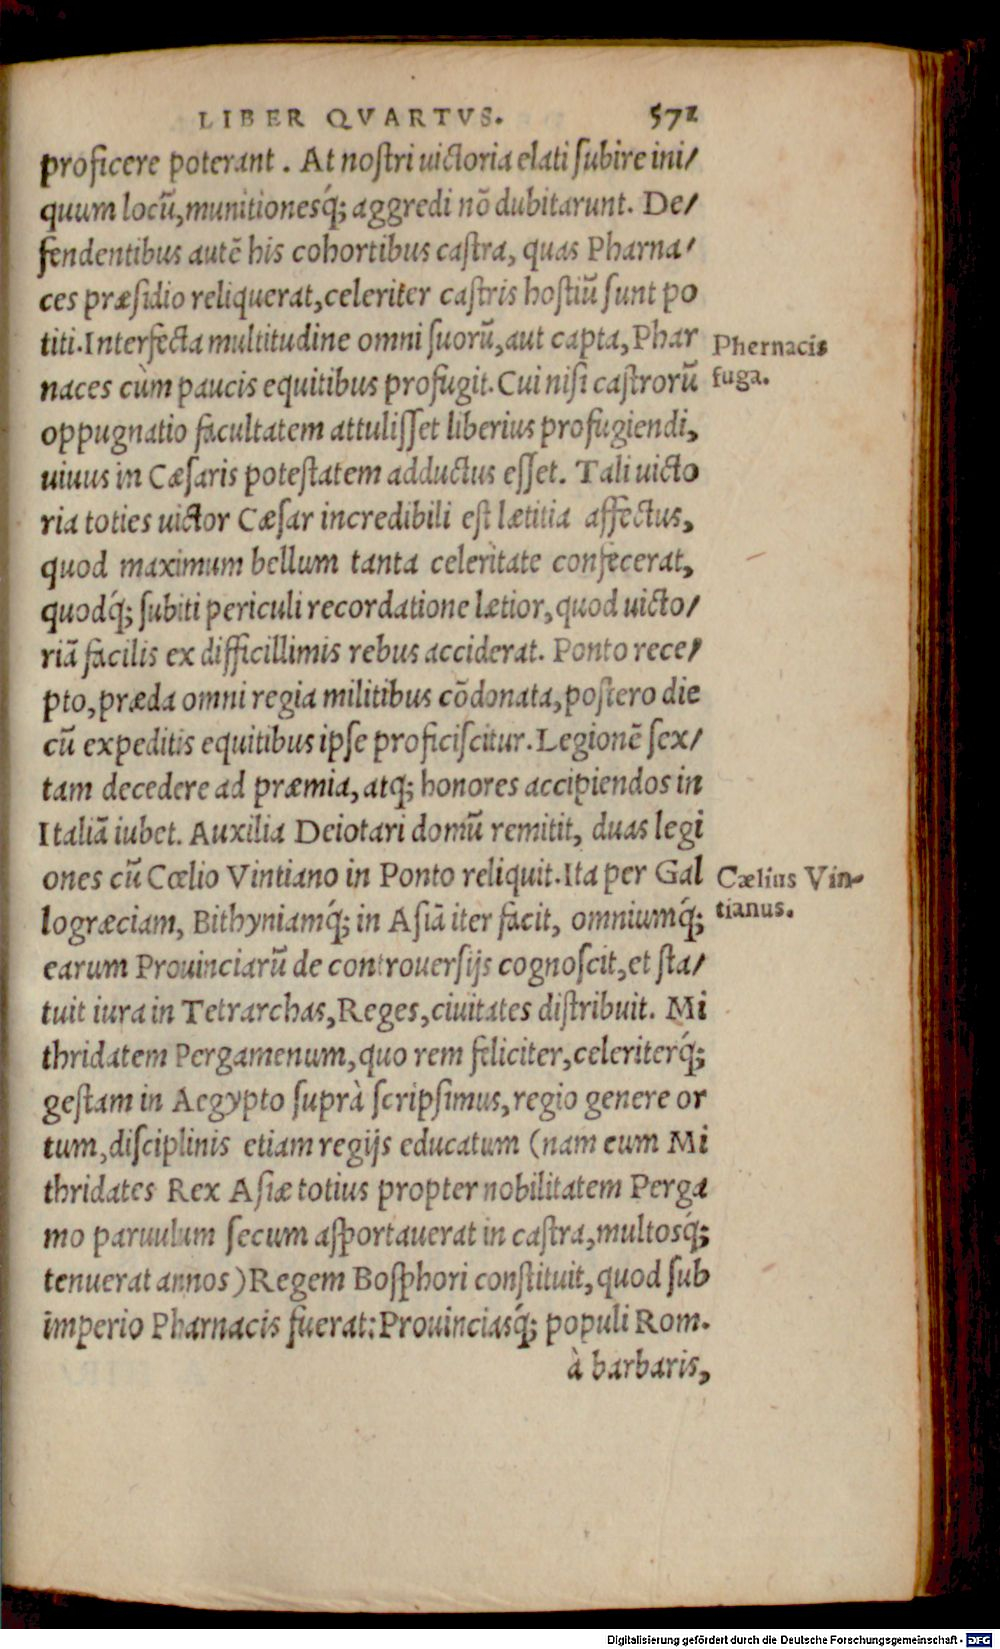 LIBER QVARTVS. 571
proficere poterant. At nostri uictoria elati subire ini/
quum locũ, munitionesq́; aggredi nõ dubitarunt. De/
fendentibus autẽ his cohortibus castra, quas Pharna/
ces præsidio reliquerat, celeriter castris hostiũ sunt po
titi. Interfecta multitudine omni suorũ, aut capta, Phar
naces cùm paucis equitibus profugit. Cui nisi castrorũ
oppugnatio facultatem attulisset liberius profugiendi,
uiuus in Cæsaris potestatem adductus esset. Tali uicto
ria toties uictor Cæsar incredibili est lætitia affectus,
quod maximum bellum tanta celeritate confecerat,
quodq́; subiti periculi recordatione lætior, quod uicto/
riã facilis ex difficillimis rebus acciderat. Ponto rece/
pto, præda omni regia militibus cõdonata, postero die
cũ expeditis equitibus ipse proficiscitur. Legionẽ sex/
tam decedere ad præmia, atq; honores accipiendos in
Italiã iubet. Auxilia Deiotari domũ remitit, duas legi
ones cũ Cœlio Vintiano in Ponto reliquit. Ita per Gal
lográeciam, Bithyniamq́; in Asiã iter facit, omniumq́;
earum Prouinciarũ de controuersijs cognoscit, et sta/
tuit iura in Tetrarchas, Reges, ciuitates distribuit. Mi
thridatem Pergamenum, quo rem feliciter, celeriterq́;
gestam in Aegypto suprà scripsimus, regio genere or
tum, disciplinis etiam regijs educatum (nam eum Mi
thridates Rex Asiæ totius propter nobilitatem Perga
mo paruulum secum asportauerat in castra, multosq́;
tenuerat annos) Regem Bosphori constituit, quod sub
imperio Pharnacis fuerat: Prouinciasq́; populi Rom.
à barbaris,
Phernacis
fuga.
Cælius Vin-
tianus.
Digitalisierung gefördert durch die Deutsche Forschungsgemeinschaft - DFG